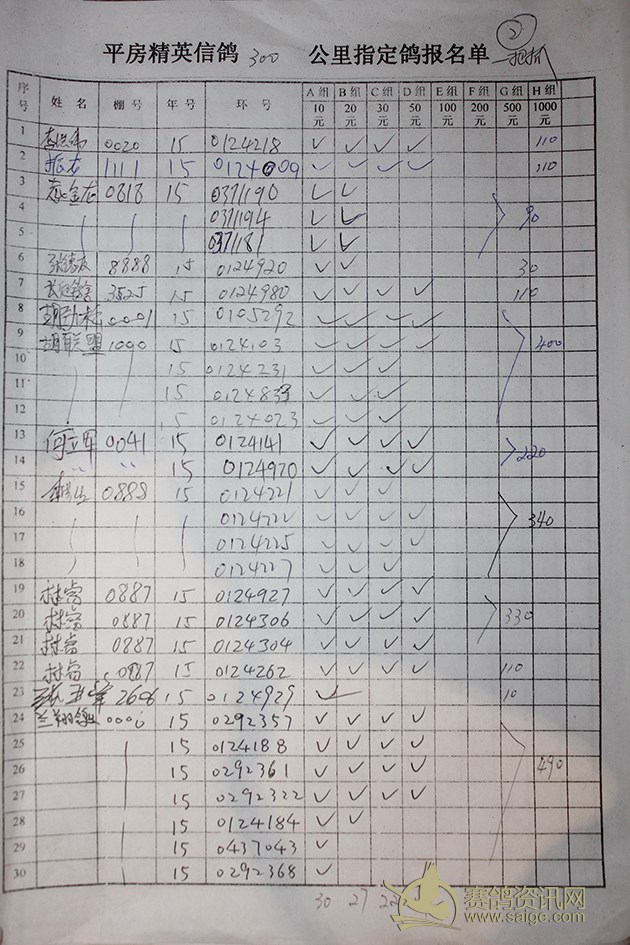 2
平房精英信鸽 300 公里指定鸽报名单
序号 姓名 棚号 年号 环号 A组 10元 B组 20元 C组 30元 D组 50元 E组 100元 F组 200元 G组 500元 H组 1000元
1 0020 15 0124218 ✓ ✓ ✓ ✓ 110
2 1111 15 0124009 ✓ ✓ ✓ ✓ 110
3 0818 15 0371190 ✓ ✓
4 0371194 ✓ ✓ 90
5 0371181 ✓ ✓
6 8888 15 0124920 ✓ ✓ 30
7 3525 15 0124980 ✓ ✓ ✓ ✓ 110
8 0001 15 0105292 ✓ ✓ ✓ ✓
9 胡联盟 1090 15 0124103 ✓ ✓ ✓ ✓ 400
10 15 0124231 ✓ ✓ ✓
11 15 0124833 ✓ ✓ ✓
12 15 0124023 ✓ ✓ ✓
13 何立军 0041 15 0124141 ✓ ✓ ✓ ✓ 220
14 〃 〃 15 0124970 ✓ ✓ ✓ ✓
15 0888 15 0124221 ✓ ✓ ✓
16 0124222 ✓ ✓ ✓ ✓ 340
17 0124225 ✓ ✓ ✓ ✓
18 0124227 ✓ ✓ ✓
19 0887 15 0124927 ✓ ✓ ✓ ✓
20 0887 15 0124306 ✓ ✓ ✓ ✓ 330
21 0887 15 0124304 ✓ ✓ ✓ ✓
22 0887 15 0124262 ✓ ✓ ✓ ✓ 110
23 2606 15 0124929 ✓ 10
24 15 0292357 ✓ ✓ ✓ ✓
25 15 0124188 ✓ ✓ ✓ ✓
26 15 0292361 ✓ ✓ ✓ ✓ 490
27 15 0292322 ✓ ✓ ✓ ✓
28 15 0124184 ✓ ✓
29 15 0437043 ✓
30 15 0292368 ✓
30 27
赛鸽资讯网
www.saige.com